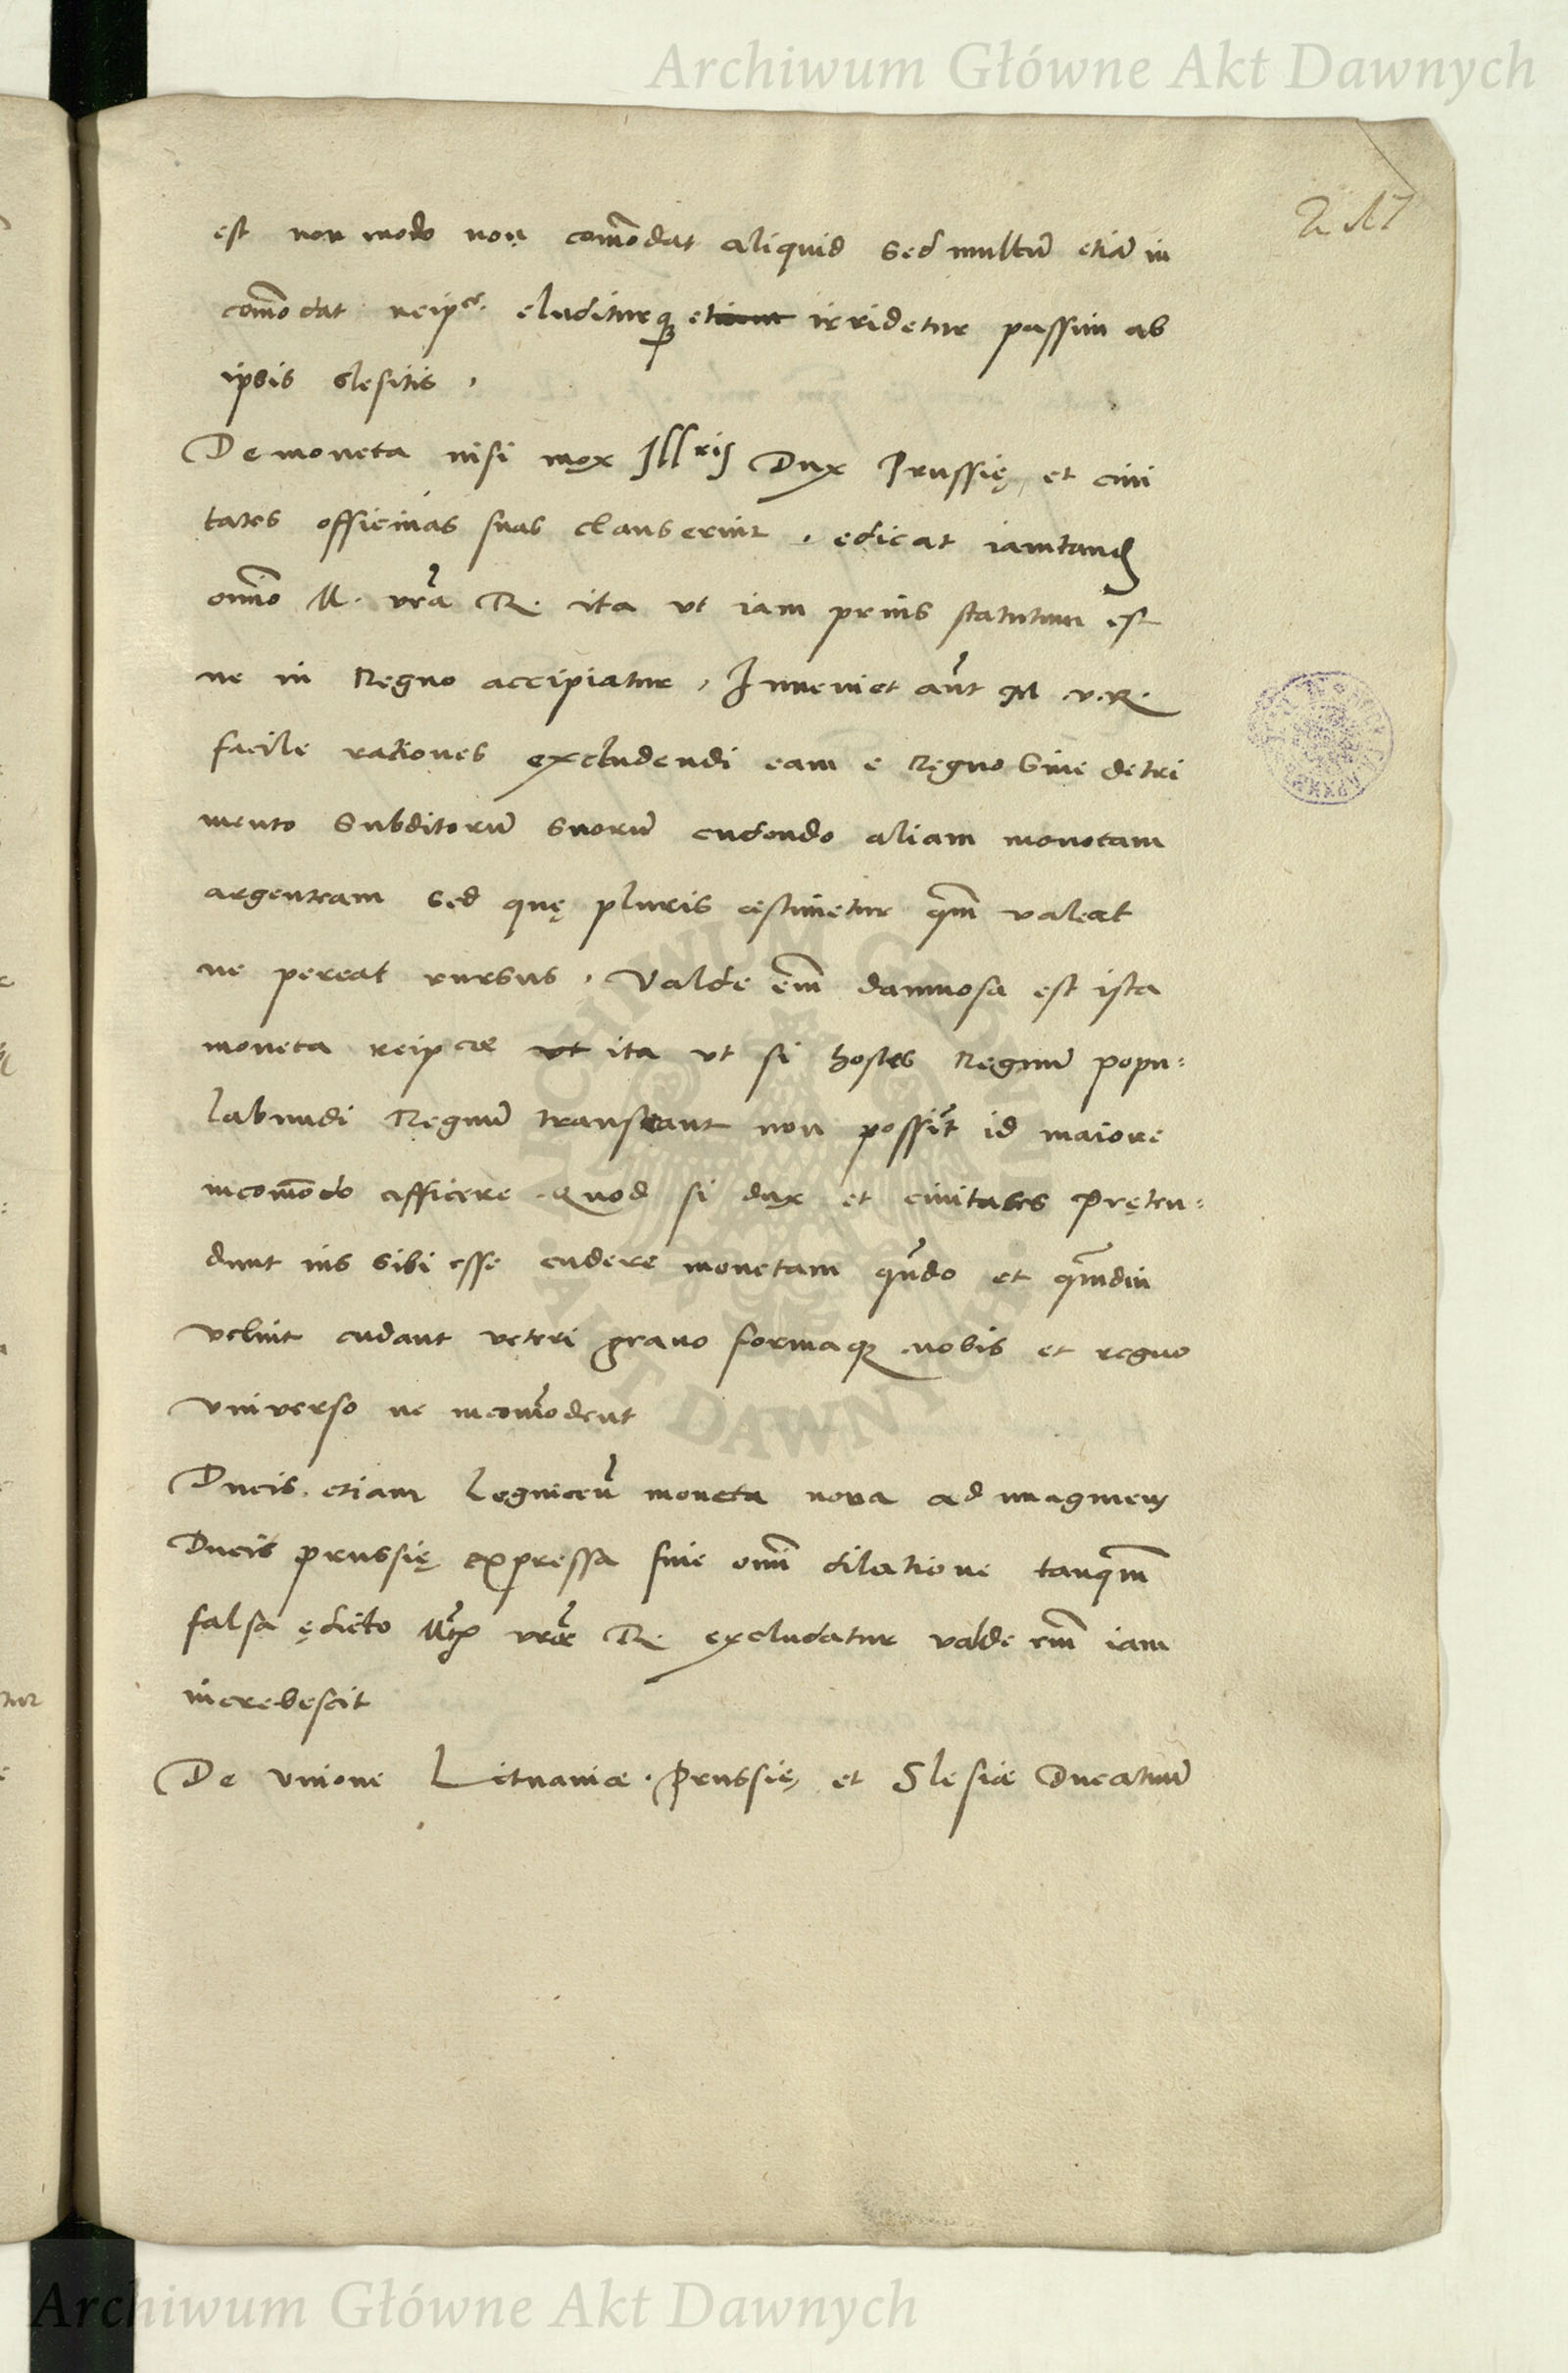 Archiwum Główne Akt Dawnych
est non modo non com̄odat aliquid sed multū etiā in
com̄odat reipce. eluditurq etiam irridetur passim ab
ipsis slesitis .
De moneta nisi mox Illris Dux Prussię et civi
tates officinas suas clauserint . edicat iamtand
om̄io M. vrā R. ita vt iam prius statutum est
ne in Regno accipiatur , Inveniet aūt M v.R.
facile rationes excludendi eam e Regno sine detri
mento subditorū suorū cudendo aliam monetam
argenteam sed quę pluris estimetur qm̄ valeat
ne pereat rursus . Valde em̄ damnosa est ista
moneta reipcæ vt ita vt si hostes Regnū popu:
labundi Regnū transeant non possīt id maiore
incom̄odo afficere . Quod si dux et civitates pręten:
dunt ius sibi esse cudere monetam qn̄do et qm̄diu
velint cudant veteri grano formaq. nobis et regno
vniverso ne incom̄odent
Ducis etiam Legnicen̄ moneta nova ad imaginem
Ducis prussię expressa sine om̄i dilatione tanqm̄
falsa ędicto Mtis vræ R. excludatur valde em̄ iam
increbescit
De vnione Lituaniæ . Prussię, et Slesiæ Ducatuū
ARCHIWUM GŁÓWNE
AKT DAWNYCH
Archiwum Główne Akt Dawnych